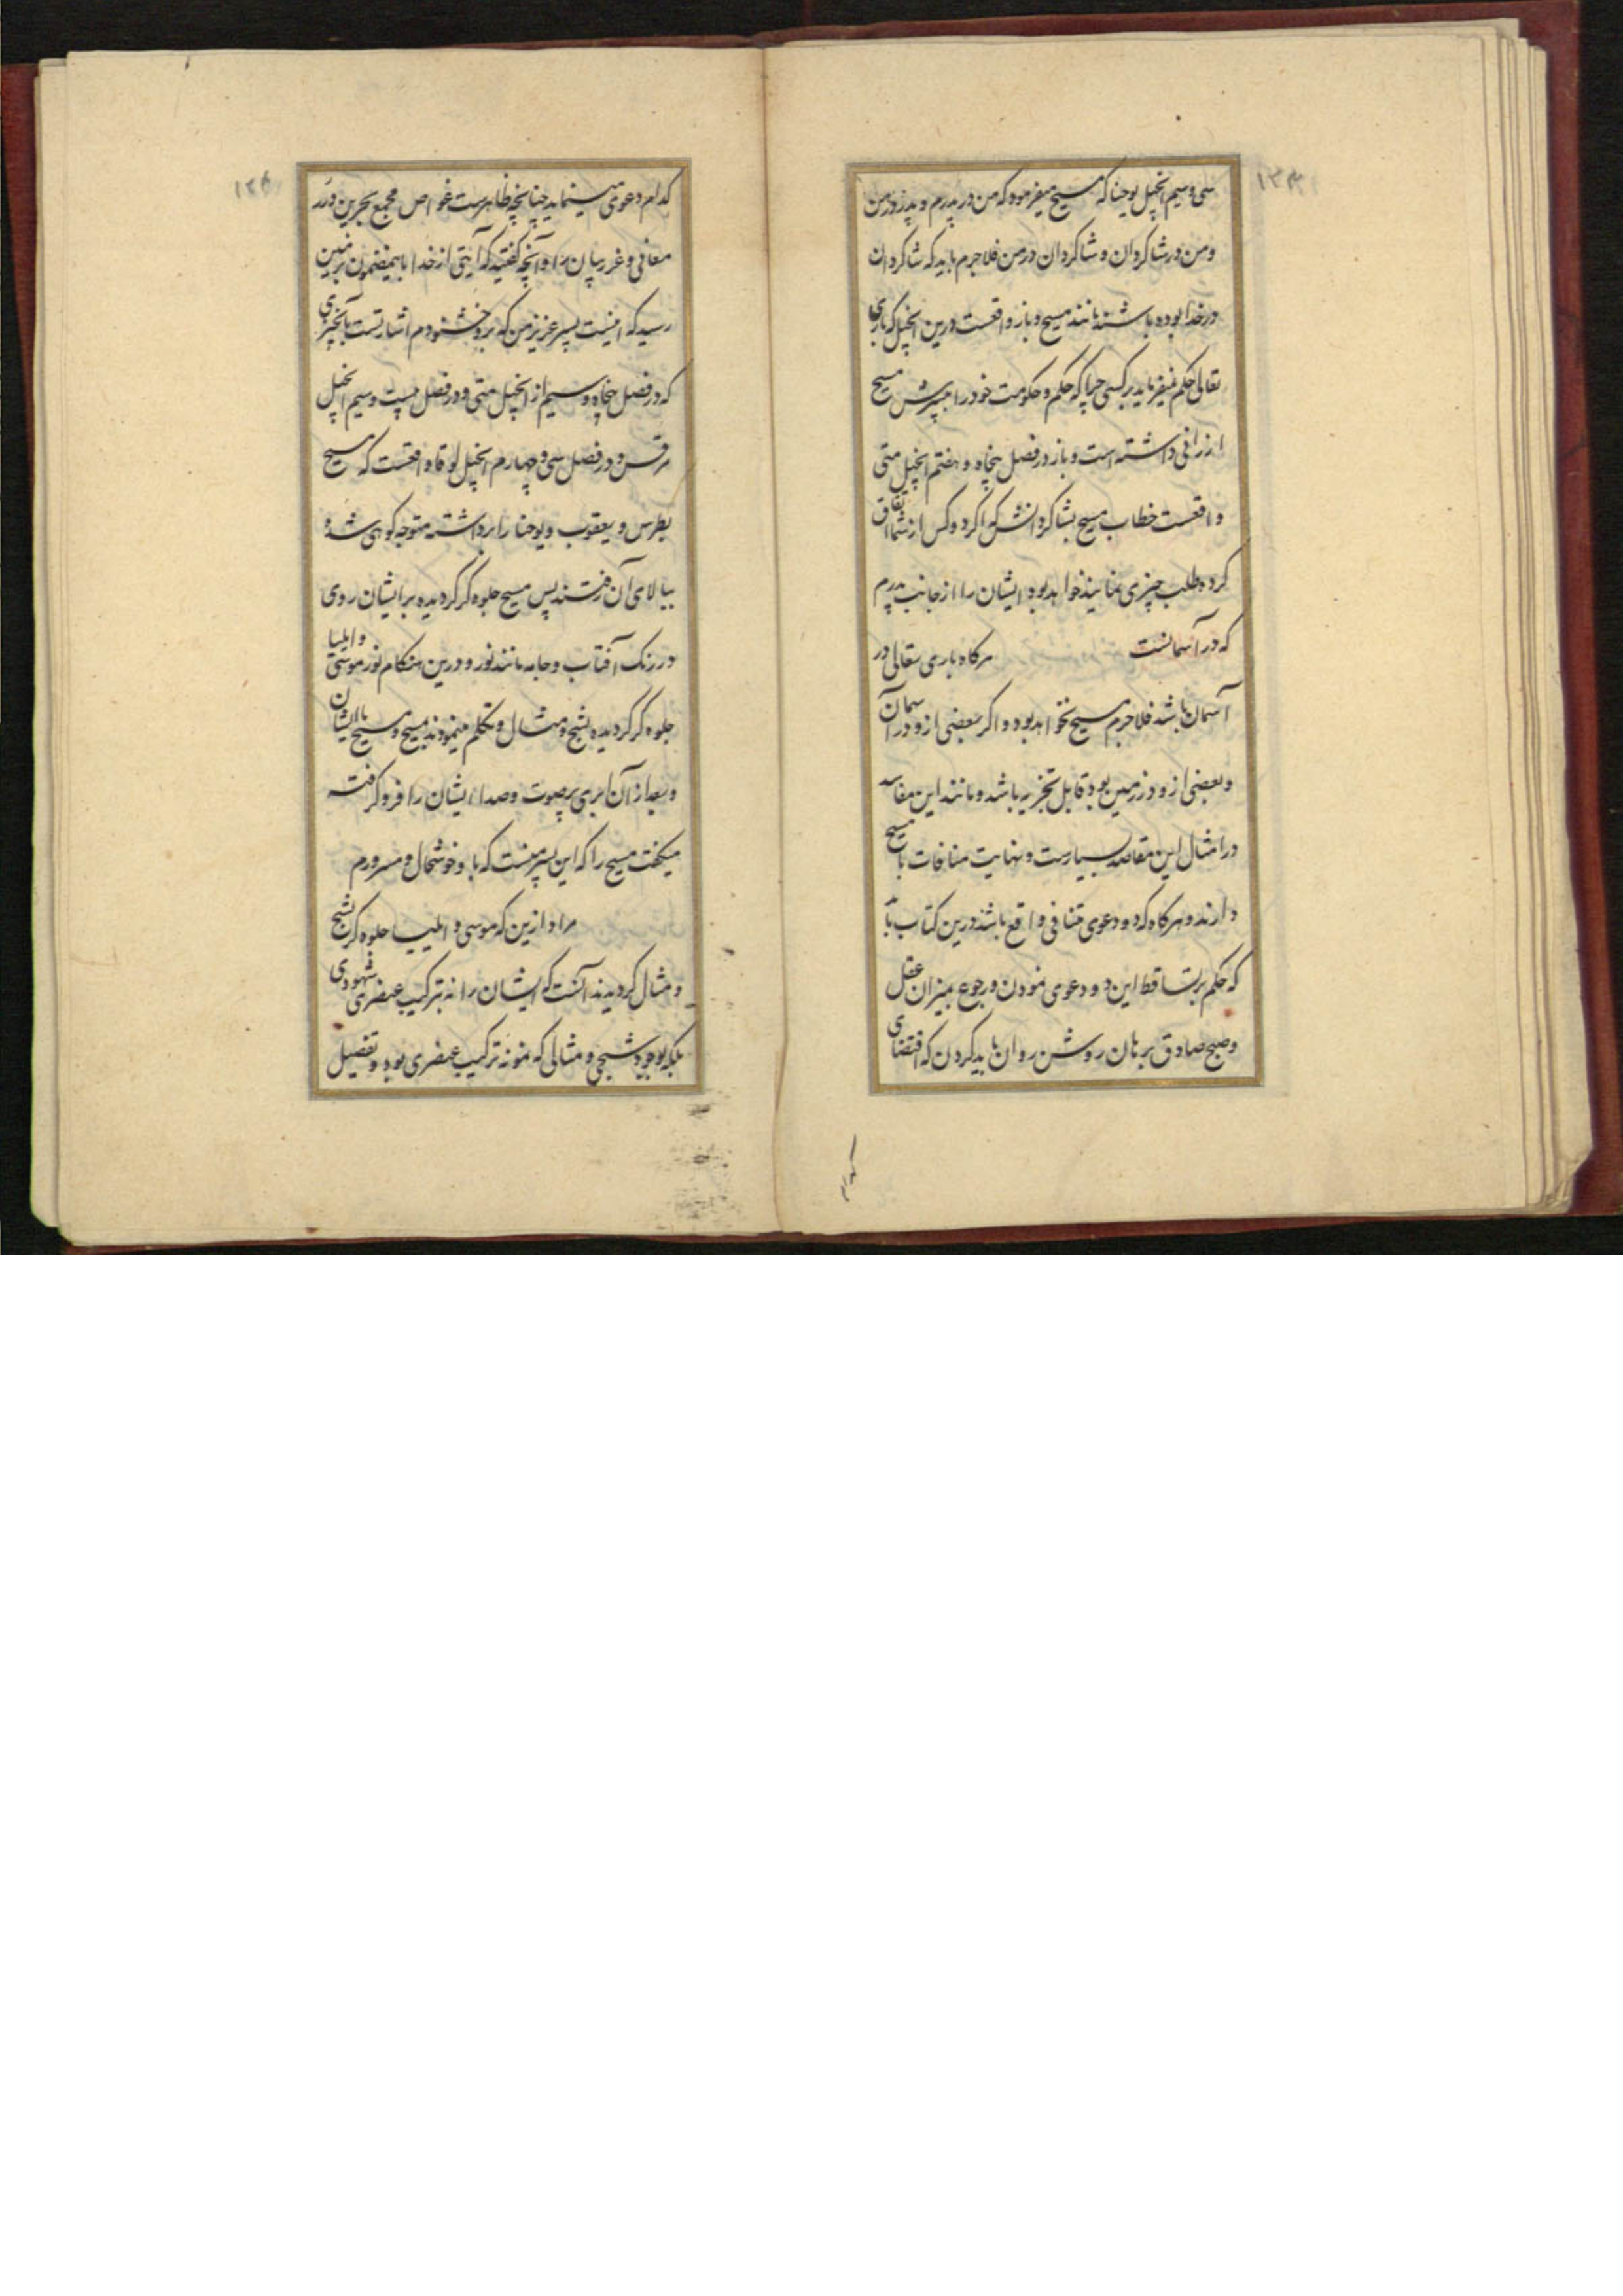 سی و سیم انجیل یوحنا که مسیح میفرمود که من در پدرم و پدر در من
و من در شاکردان و شاکردان در من فلاجرم باید که شاکردان
در خدا بوده باشند مانند مسیح و باز واقعست درین انجیل که باری
تعالی حکم نمیفرماید بر کسی چرا که حکم و حکومت خود را بپسرش مسیح
ارزانی داشته است و باز در فصل پنجاه و هفتم انجیل متی
واقعست خطاب مسیح بشاکردانش که اکر دو کس از شما اتفاق
کرده طلب چیزی نمایند خواهد بود ایشان را از جانب پدرم
که در آسمانست هرکاه باری تعالی در
آسمان باشد فلاجرم مسیح نخواهد بود و اکر بعضی ازو در آسمان
و بعضی ازو در زمین بود قابل تجزیه باشد و مانند این مفاسد
در امثال این مقاصد بسیارست و نهایت منافات با مسیح
دارند و هرکاه که دو دعوی متنافی واقع باشد درین کتاب با
که حکم بر تساقط این دو دعوی نمودن و رجوع بمیزان عقل
و صبح صادق برهان روشن روان باید کردن که اقتضای
کدام
۱۳۴
کدام دعوی مینماید چنانچه ظاهرست غواص مجمع بحرین درر
معانی و غرر بیان را و آنچه کفتید که آیتی از خدا باینمضمون بر زمین
رسید که اینست پسر عزیز من که برو خشنودم اشارتست بآنچیزی
که در فصل پنجاه و سیم از انجیل متی و در فصل بیست و سیم انجیل
مرقس و در فصل سی و چهارم انجیل لوقا واقعست که مسیح
بطرس و یعقوب و یوحنا را برداشته متوجه کوهی شده
ببالای آن رفتند پس مسیح جلوه کر کردیده برایشان روی
در رنک آفتاب و جامه مانند نور و درین هنکام نور موسی و ایلیا
جلوه کر کردیده بشبح و مثال و تکلم مینمودند بمسیح و مسیح باایشان
و بعد از آن ابری پرصوت و صدا ایشان را فرو کرفته
میکفت مسیح را که این پسر منست که باو خوشحال و مسرورم
مراد ازین که موسی و ایلیا جلوه کر بشبح
و مثال کردیدند آنست که ایشان را نه بترکیب عنصری شهودی
بلکه بوجود شبحی و مثالی که نمونه ترکیب عنصری بود و تفصیل
۱۳۵